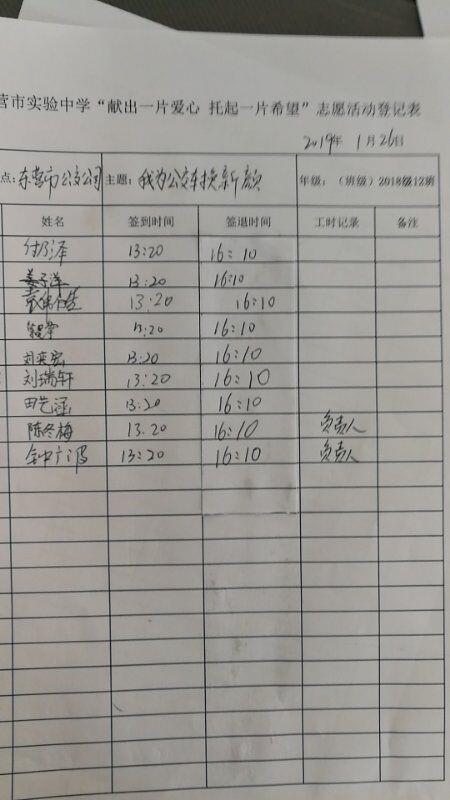 营市实验中学“献出一片爱心 托起一片希望”志愿活动登记表
2019年 1月26日
点：东营市公交公司 主题：我为公交车换新颜 年级：（班级）2018级12班
姓名 签到时间 签退时间 工时记录 备注
付乃泽 13:20 16:10
姜子洋 13:20 16:10
13:20 16:10
13:20 16:10
刘奕宏 13:20 16:10
刘瑞轩 13:20 16:10
田艺涵 13:20 16:10
陈冬梅 13.20 16:10 负责人
13:20 16:10 负责人